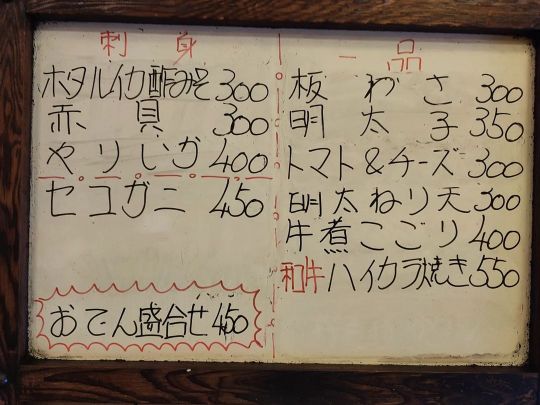 刺身
ホタルイカ酢みそ 300
赤貝 300
やりいか 400
セコガニ 450
おでん盛合せ 450
一品
板わさ 300
明太子 350
トマト&チーズ 300
明太ねり天 300
牛煮こごり 400
和牛ハイカラ焼き 550